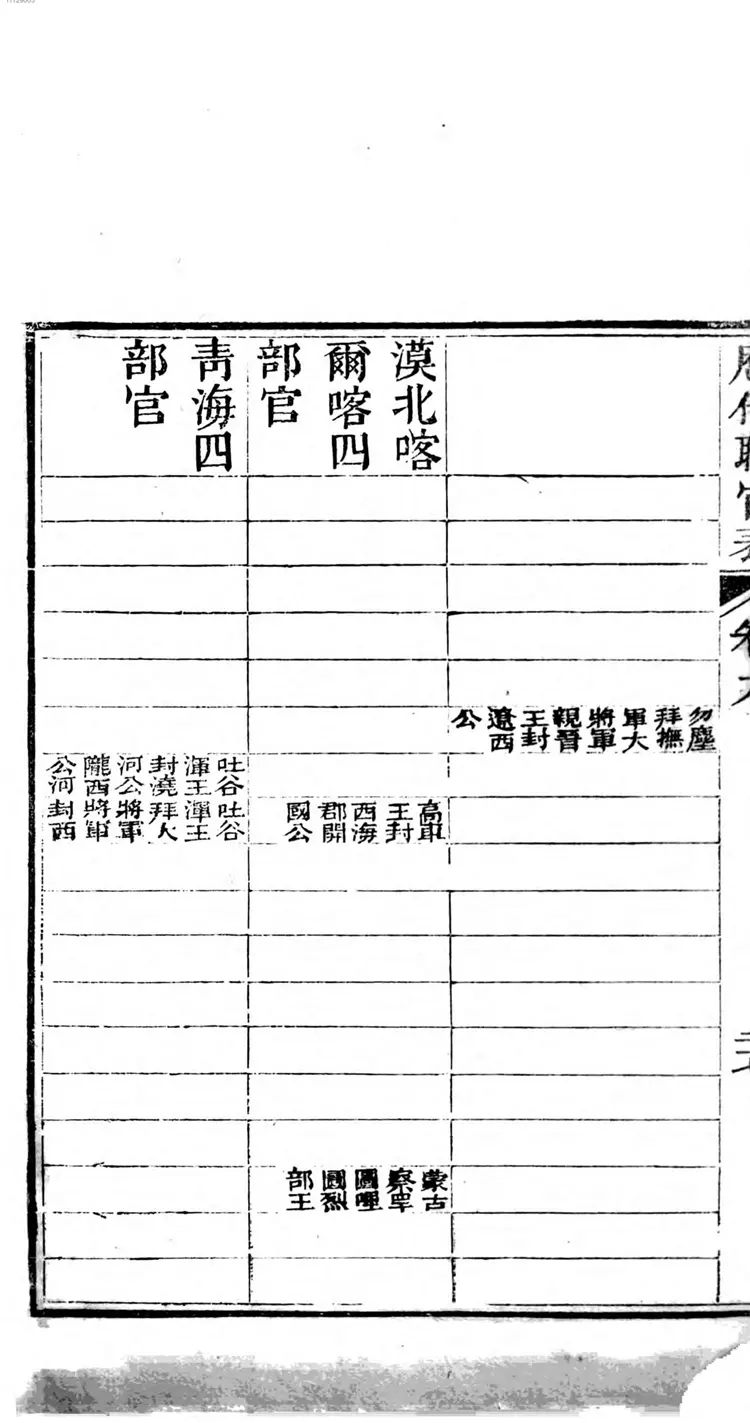 歷代職官表
卷六
勿塵
拜撫
軍大
將軍
親晉
王封
遼西
公
漠北喀
爾喀四
部官
高車
王封
西海
郡開
國公
蒙古
察罕
部王
青海四
部官
吐谷
渾王
封澆
河公
吐谷
渾王
拜大
將軍
隴西
公
將軍
河封西